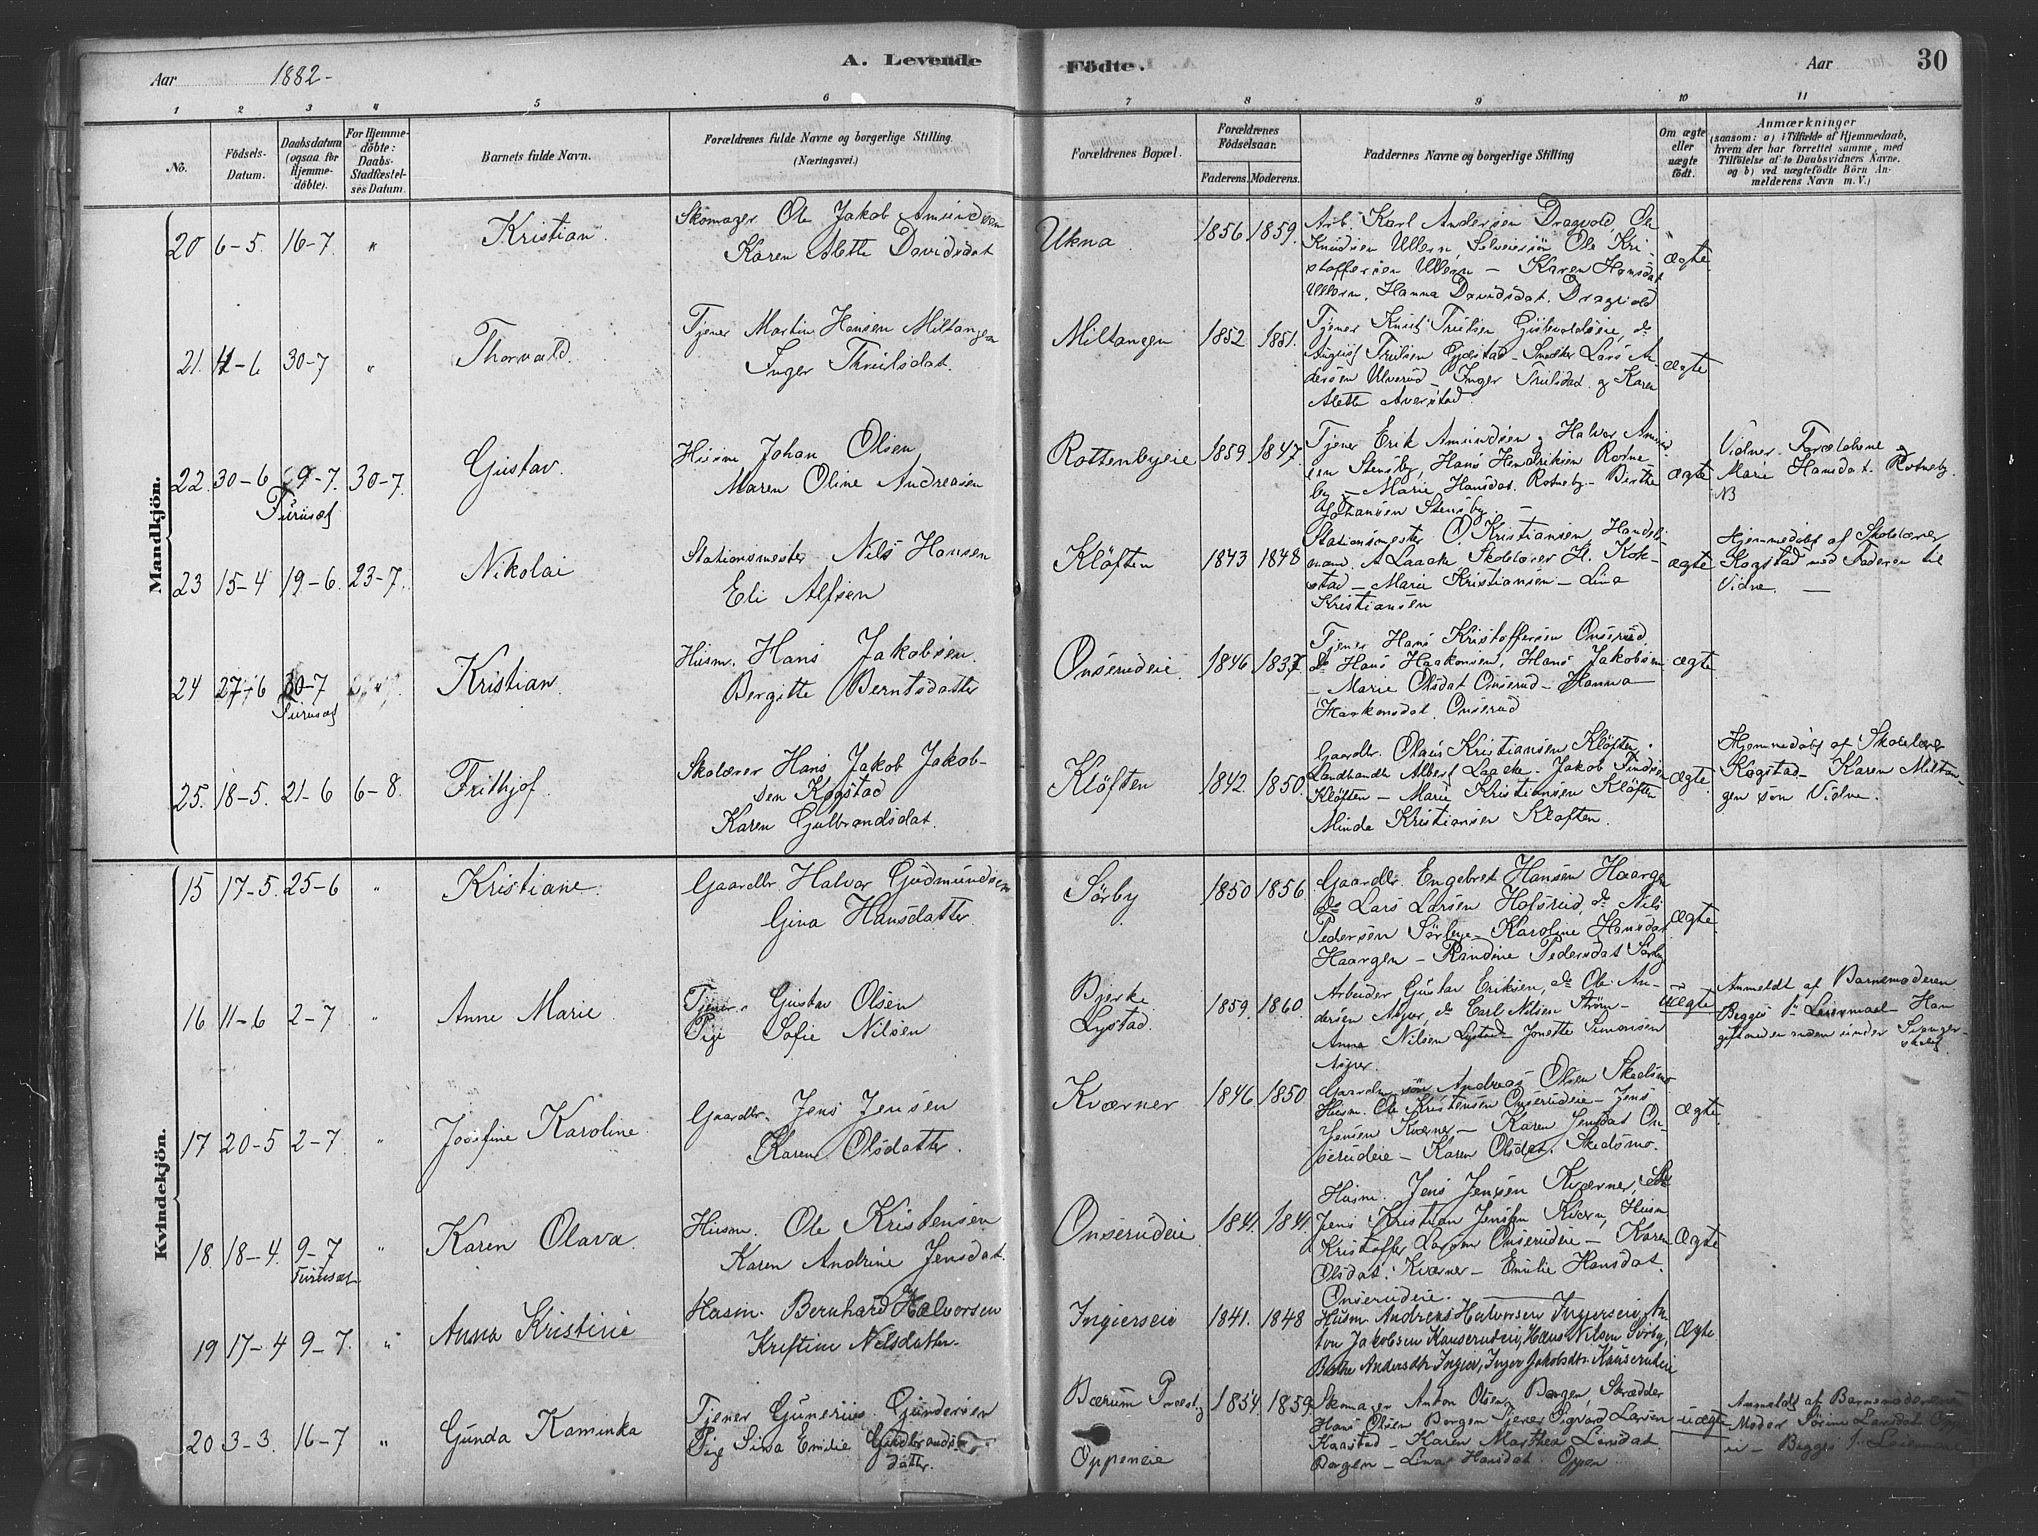 Aar 1882- A. Levende Födte. Aar 30
1 2 3 4 5 6 7 8 9 10 11
No.
Födsels-
Datum.
Daabsdatum
(ogsaa for
Hjemme-
döbte).
For Hjemme-
döbte:
Daabs-
Stadfæstel-
ses Datum.
Barnets fulde Navn.
Forældrenes fulde Navne og borgerlige Stilling.
(Næringsvei.)
Forældrenes Bopæl.
Forældrenes
Födselsaar.
Faderens. Moderens.
Faddernes Navne og borgerlige Stilling
Om ægte
eller
uægte
födt.
Anmærkninger
(saasom: a) i Tilfælde af Hjemmedaab,
hvem der har forrettet samme, med
Tilföielse af to Daabsvidners Navne.
og b) ved uægtefödte Börn An-
melderens Navn m. V.)
Mandkjön.
20 6-5. 16-7 " Kristian.
Skomager Ole Jakob Amundsen
Karen Alette Davidsdat
Ukna 1856 1859.
Arb. Karl Andersen Dragvold, Ole
Knudsen Ullern, Ole Kri-
stoffersen Ullern - Karen Hansdat
Ullern, Hanna Davidsdat. Dragvold
ægte
21. 11-6 30-7 " Thorvald.
Tjener Martin Hansen Miltangen
Inger Thrulsdat.
Miltangen 1852 1851.
Tjener Knut Trulsen
August Trulsen - Snedker Lars A-
dersen Ulverud - Inger Trulsdat. og Karen
Alette
Ægte
22. 30-6 9-7. 30-7. Gustav.
Furuset
Husm Johan Olsen
Maren Oline Andreasen
Rottenbyeie 1859 1847.
Tjener Erik Amundsen, Halvor Amund
sen Stensby, Hans Hendriksen Rotne
by - Marie Hansdat. Rotneby - Berthe
Johansen Stensby. -
ægte
Vidner Forældrene og
Marie Hansdat. Rotneby.
NB
23 15-4 19-6. 23-7. Nikolai
Stationsmester Nils Hansen
Eli Alfsen
Klöften 1843 1848
Stationsmester O. Kristiansen, Handels-
mand. A Laache Skolelærer H. Kok-
stad - Marie Kristiansen - Lina
Kristiansen
ægte
Hjemmedöbt af Skolelærer
Kogstad med Faderen til
Vidne. -
24 27-6 30-7 Kristian.
Furuset
Husm. Hans Jakobsen.
Bergitte Berntsdatter
Onserudeie. 1846 1837.
Tjener Hans Kristoffersen Onserud
do Hans Haakonsen, Hans Jakobsen
- Marie Olsdat Onserud - Hanna
Haakonsdat. Onserud
ægte
25. 18-5. 21-6 6-8. Frithjof.
Skolærer Hans Jakob Jakob-
sen Kogstad
Karen Gulbrandsdat.
Klöften 1842. 1850.
Gaardbr. Olaus Kristiansen Klöften.
Landhandl Albert Laache. Jakob
Klöften - Marie Kristiansen Klöften
Minda Kristiansen Klöften.
Ægte.
Hjemmedöbt af Skolelærer
Kogstad - Karen Miltan-
gen som Vidne.
Kvindekjön.
15 17-5. 25-6 " Kristiane.
Gaardbr. Halvor Gudmundsen
Gina Hansdatter
Sörby 1850 1856.
Gaardbr. Engebret Hansen Haargen
do Lars Larsen Holsrud, do Nils
Pedersen Sörbye - Karoline Hansdat
Haargen - Randine Pedersdat Sörby
Ægte
16 11-6 2-7. " Anne Marie
Tjener Gustav Olsen
Pige Sofie Nilsen
Bjerke
Lystad. 1859. 1860.
Arbeider Gustav Eriksen, do Ole An-
dersen do Carl Nilsen Ström-
Anna Nilsen Lystad - Jonette Simonsen
uægte
Anmeldt af Barnemoderen
Begges 1ste Leiermaal - Han
17 20-5 2-7. " Josefine Karoline.
Gaardbr. Jens Jensen
Karen Olsdatter.
Kværner 1846 1850
Gaardm sön Andreas Olsen Skedsmo
Husm. Ole Kristensen Onserudeie - Jens
Jensen Kværner - Karen Jensdat On-
serudeie - Karen Olsdat. Skedsmo.
Ægte.
18. 18-4. 9-7 " Karen Olava.
Furuset
Husm. Ole Kristensen
Karen Andrine Jensdat
Onserudeie 1841. 1841.
Husm. Jens Jensen Kværner,
Jens Kristian Jensen Kværn, Husm
Kristoffer Larsen Onserudeie - Karen
Olsdat. Kværner - Emilie Hansdat.
Onserudeie.
Ægte
19 17-4 9-7. " Anna Kristine
Husm. Bernhard Halvorsen
Kristine Nilsdatter.
Ingierseie 1841. 1848
Husm Andreas Halvorsen Ingierseie, An-
ton Jakobsen Kauserudeie, Hans Nilsen Sörby,
Berthe Andersdtr Ingier, Inger Jakobsdtr. Kauserudeie
Ægte
20 3-3. 16-7 " Gunda Kaminka
Tjener Gunerius Gundersen
Pige Sina Emilie Guldbrands-
datter.
Bærum Præstg
Oppeneie 1854. 1859
Skomager Anton Olsen Borgen, Skrædder
Hans Olsen Borgen Tjener Sigvard Larsen
Haastad - Karen Marthea Larsdat.
Borgen - Lina Hansdat. Oppen
uægte
Anmeldt af Barnemoderens
Moder Sörine Larsdat
- Begges 1. Leiermaal